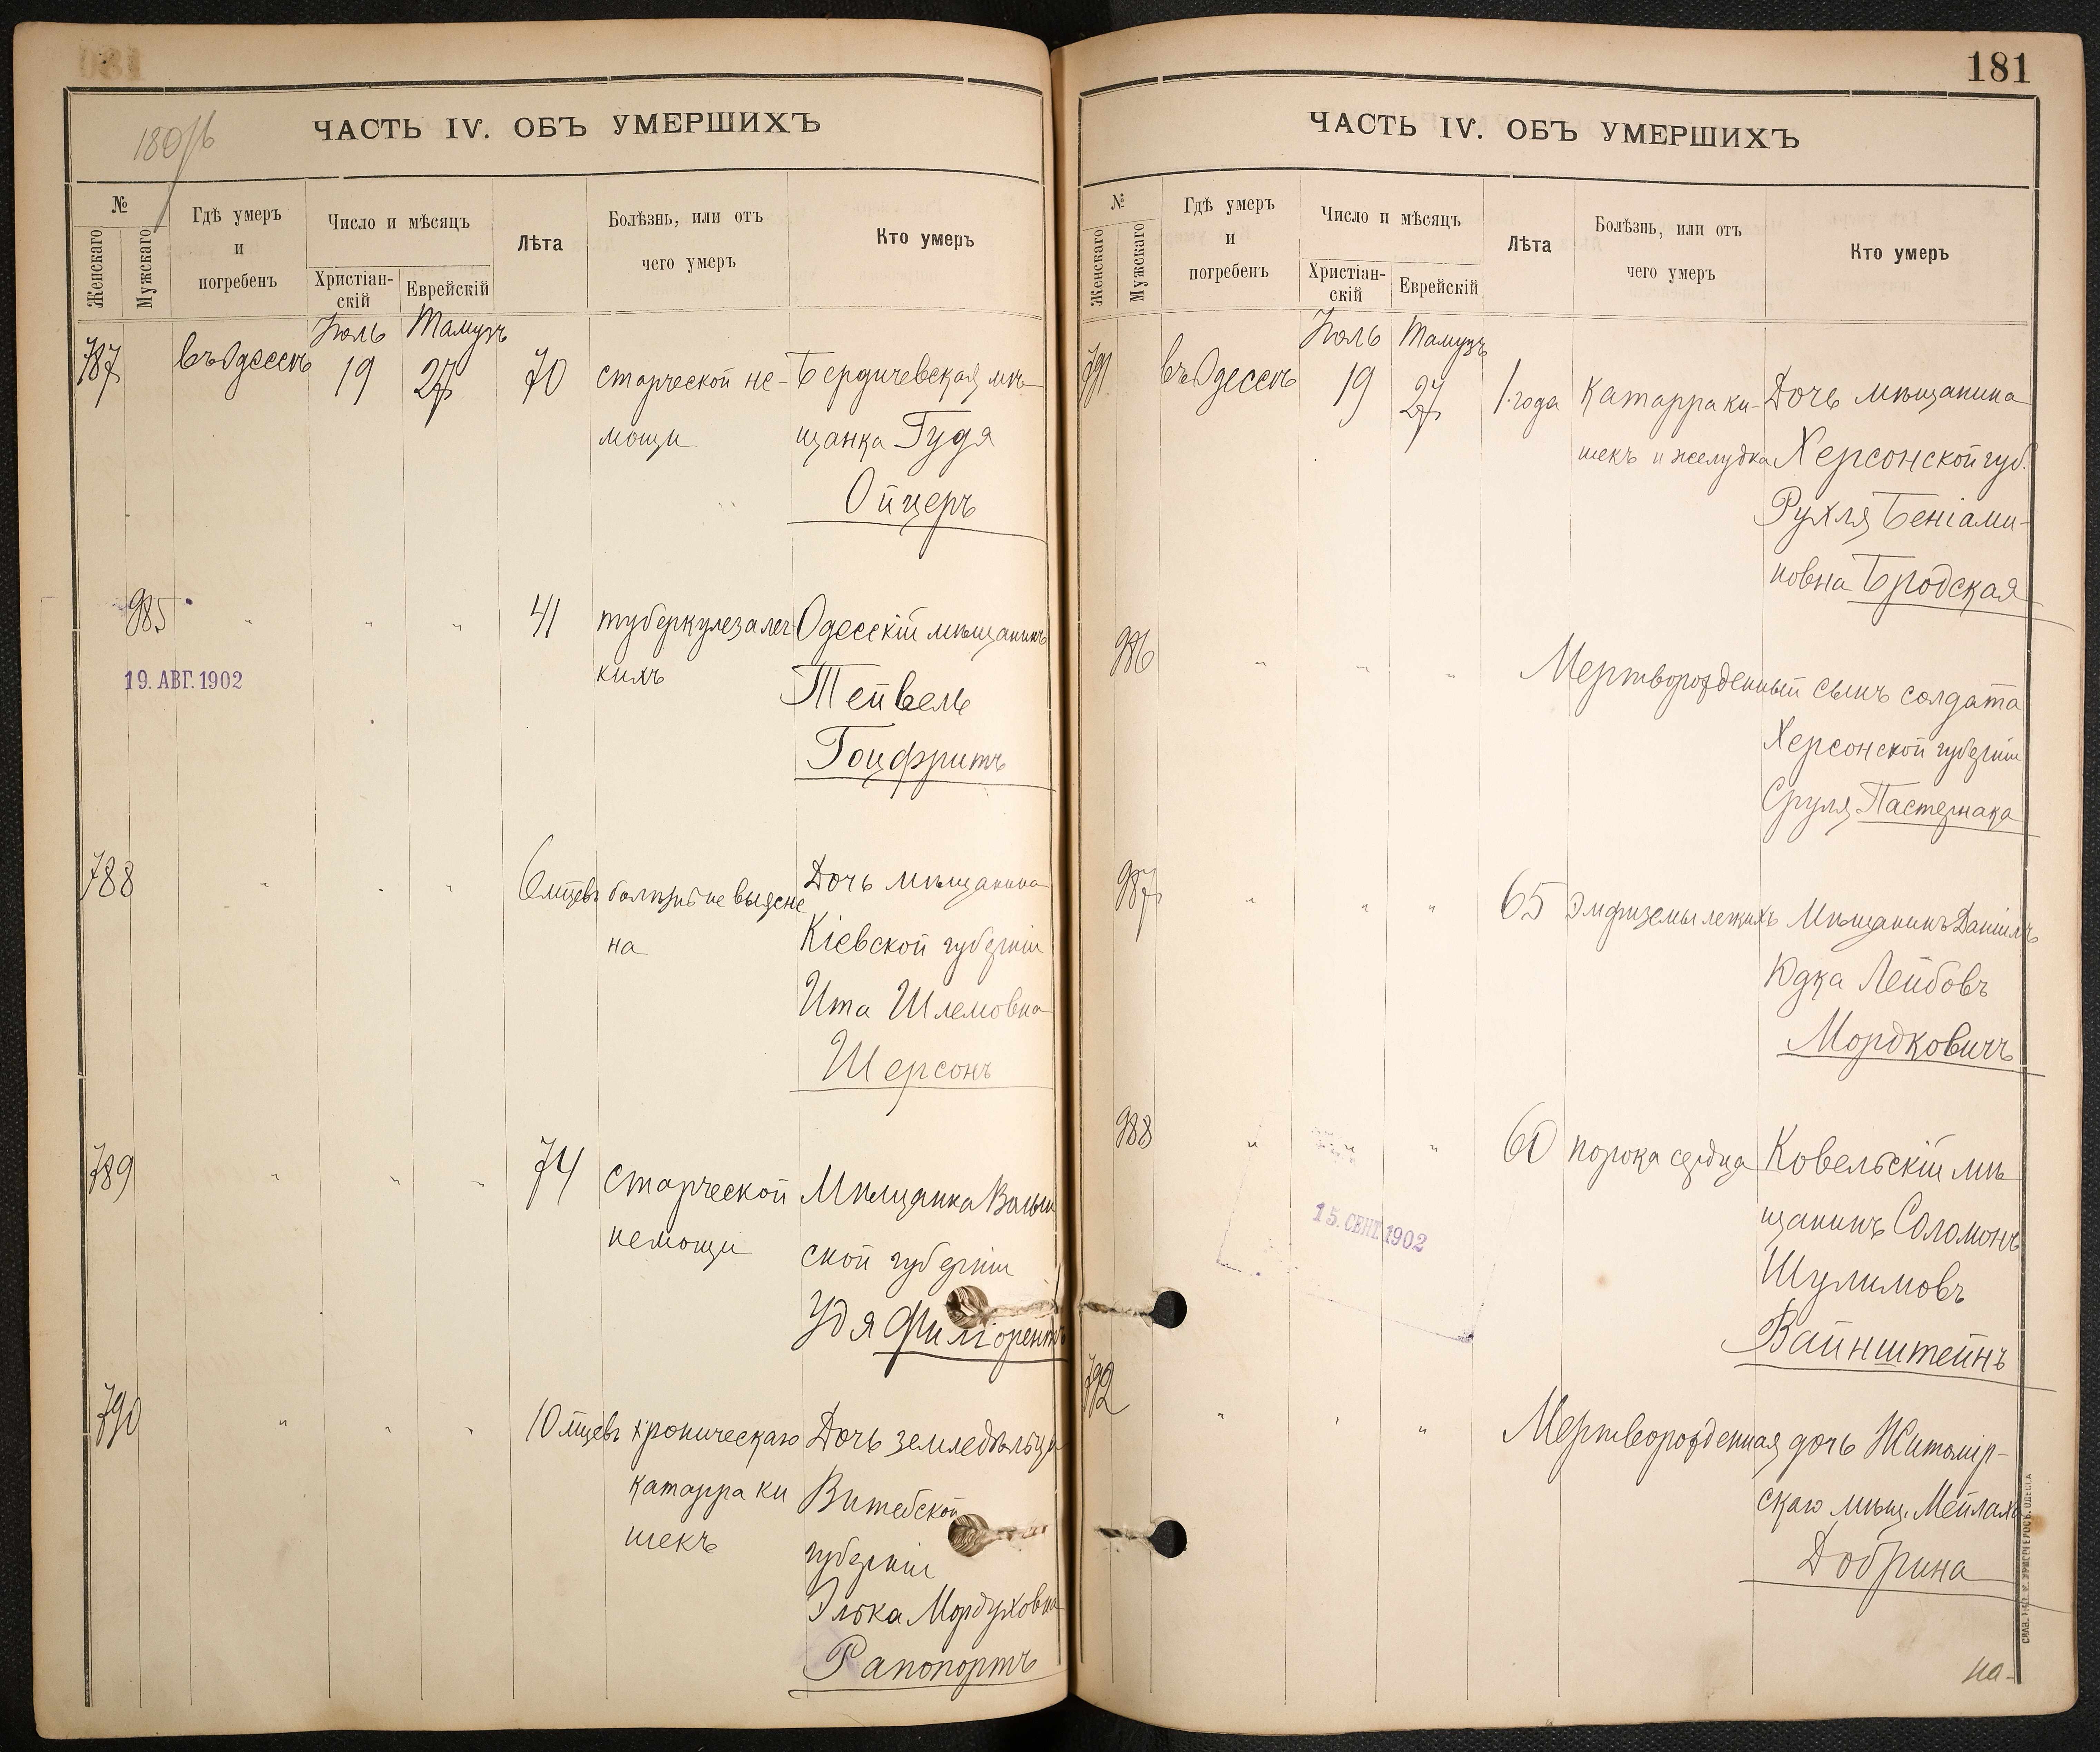 180/б
ЧАСТЬ IV. ОБЪ УМЕРШИХЪ
№
Женскаго
Мужскаго
Гдѣ умеръ
и
погребенъ
Число и мѣсяцъ
Христіан-
скій
Еврейскій
Лѣта
Болѣзнь, или отъ
чего умеръ
Кто умеръ
Іюль Тамузъ
787 въ Одессѣ 19 27 70 старческой не- Бердичевская мѣ-
мощи щанка Гудя
Ойцеръ
985 " " " 41 туберкулеза лег- Одесскій мѣщанинъ
кихъ
19. АВГ. 1902
Тейвель
Гоцфритъ
788 " " " 6 мцевъ болѣзнь не выясне Дочь мѣщанина
на Кіевской губерніи
Ита Шлемовна
Шерсонъ
789 " " " 74 старческой Мѣщанка Волын
немощи ской губерніи
Удя
790 " " " 10 мцевъ хроническаго Дочь земледѣльца
катарра ки Витебской
шекъ губерніи
Элька Мордуховна
Рапопортъ
181
ЧАСТЬ IV. ОБЪ УМЕРШИХЪ
№
Женскаго
Мужскаго
Гдѣ умеръ
и
погребенъ
Число и мѣсяцъ
Христіан-
скій
Еврейскій
Лѣта
Болѣзнь, или отъ
чего умеръ
Кто умеръ
Іюль Тамузъ
791 въ Одессѣ 19 27 1 года катарра ки- Дочь мѣщанина
шекъ и желудка Херсонской губ.
Рухля Беніами-
новна Бродская
986 " " " Мертворожденный сынъ солдата
Херсонской губерніи
Сруля Пастернака
987 " " " 65 эмфиземы легкихъ Мѣщанинъ
Юдка Лейбовъ
Мордковичъ
988 " " " 60 порока сердца Ковельскій мѣ
щанинъ Соломонъ
15. СЕНТ. 1902
Шулимовъ
Вайнштейнъ
792 " " " Мертворожденная дочь Житомір-
скаго мѣщ. Мейлаха
Добрина
на-